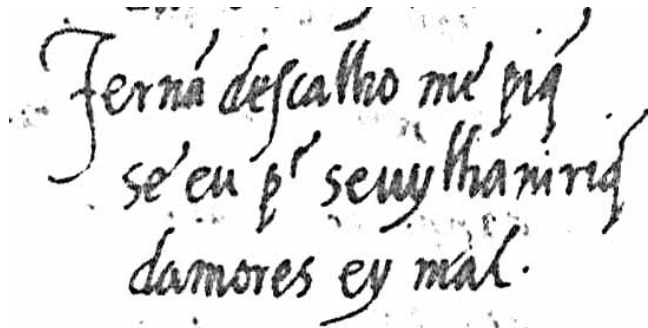 Fernã descalho mẽ piq̃
sẽ eu p̃ seuylhaniriq̃
damores ey mal.